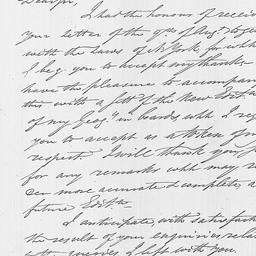 Dear Sir,
I had the honour of recei
your letter of the 9th of Aug.t toge
with the Laws of N York for wh
I beg you to accept my thanks
have the pleasure to accompan
this with a sett of the New Edit.
of my Geog.y in boards wh I re
you to accept as a token of m
respect. I will thank you f
for any remarks wh may r
der more accurate & complete a
future Edit.n
I anticipate with satisfact
the result of your enquiries rela
queries I left with you